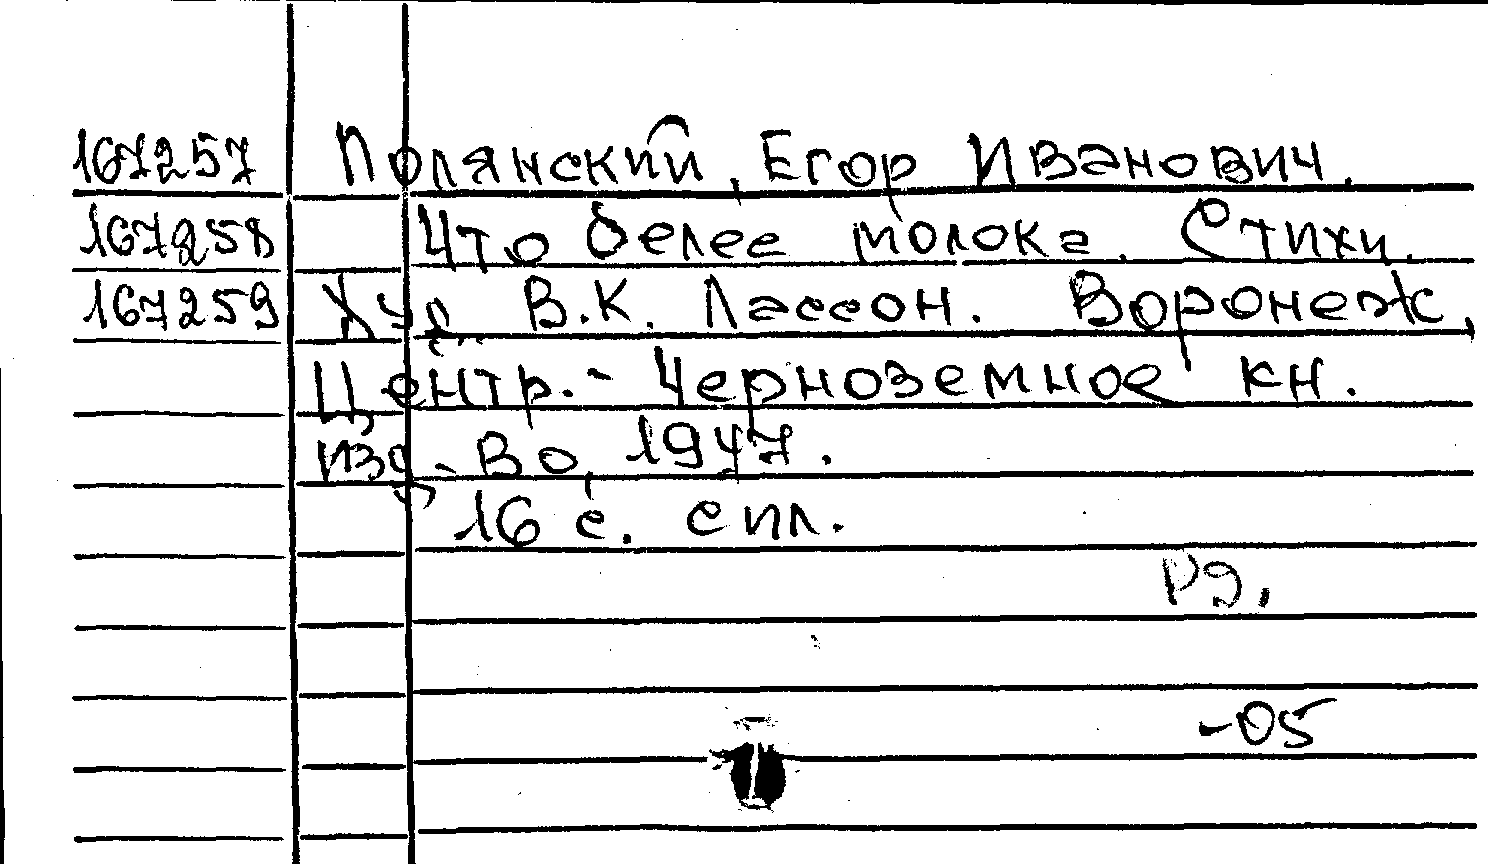 167257 Полянский, Егор Иванович.
167258 Что белее молока. Стихи.
167259 Худ. В.К. Лассон. Воронеж,
Центр.-Черноземное кн.
изд-во, 1947.
16 с. с ил.
Р9.
-05